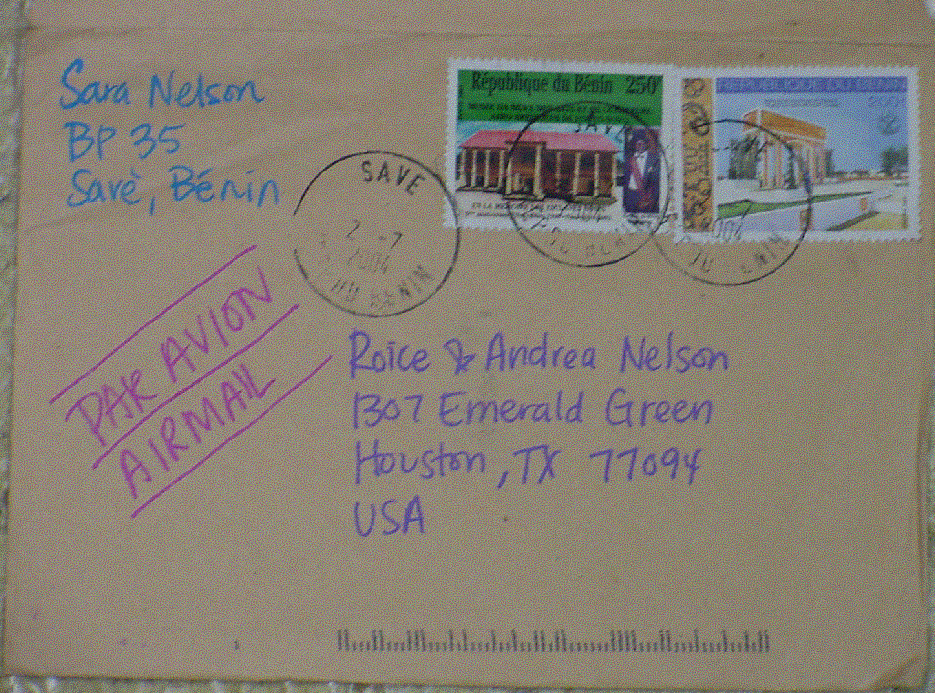 Sara Nelson
BP 35
Savè, Bénin
République du Bénin 250F
REPUBLIQUE DU BENIN
SAVE
2 -7
2004
DU BENIN
SAVE
PAR AVION
AIRMAIL
Roice & Andrea Nelson
1307 Emerald Green
Houston, TX 77094
USA